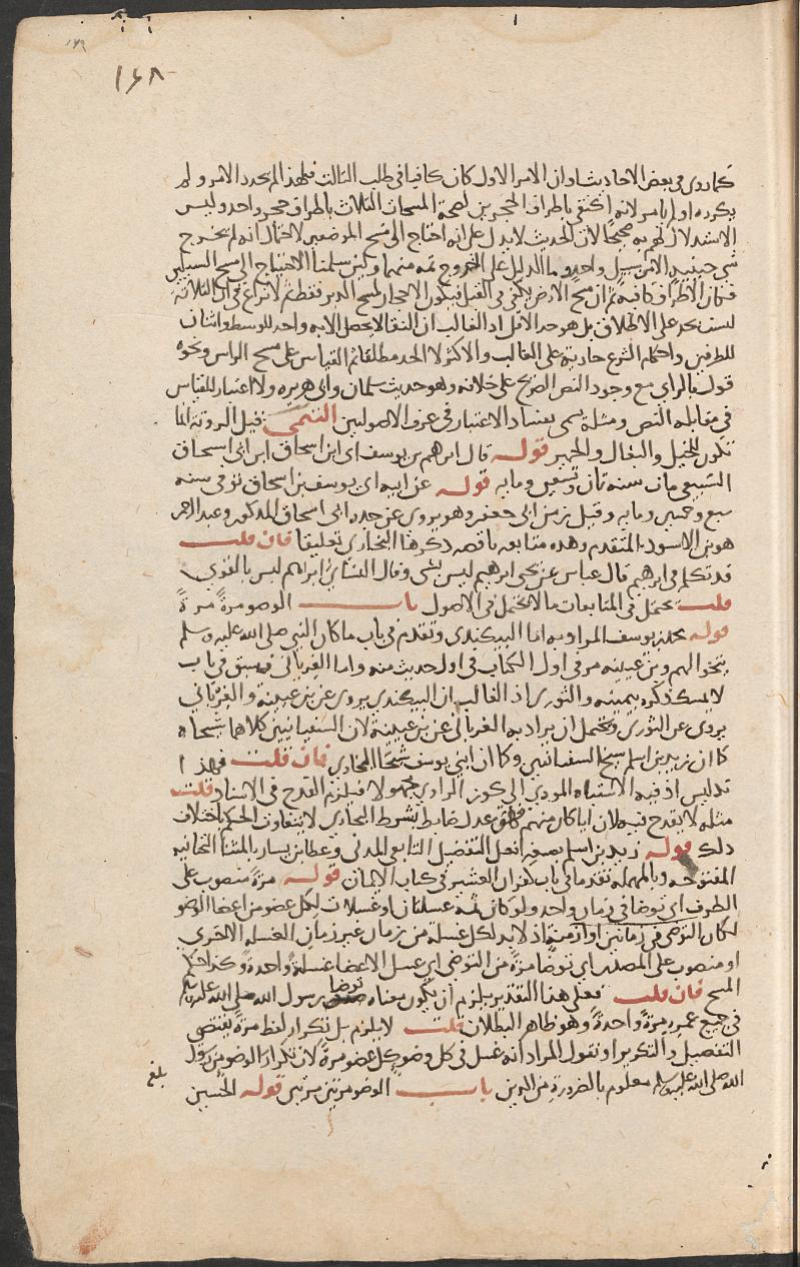 ١٤٩
١٤٨
كما روى فى بعض الاحاديث او ان الامر الاول كان كافيا فى طلب الثالث فلهذا لم يجدد الامر ولم
يكرره او لم يامر لانه اكتفى باطراف الحجرين لصحة المسحات الثلاث باطراف حجر واحد وليس
الاستدلال لخر به صحيحا لان الحديث لا يدل على انه احتاج الى مسح الموضعين لاحتمال انه لم يخرج
شى حينيذ الا من سبيل واحد وما الدليل على الخروج ثمه منهما ولين سلمنا الاحتياج الى مسح السبيلين
فكان الاطراف كافية ثم ان مسح الارض يكفى فى القبل فيكون الاحجار لمسح الدبر فقط ثم لا نزاع فى ان الثلاثة
ليست بحد على الاطلاق بل هو حد الاقل اذ الغالب ان النقا لا يحصل الا به واحد للوسط واثنان
للطرفين واحكام الشرع جارية على الغالب والاكثر لا الحد مطلقا ثم القياس على مسح الراس ونحوه
قول بالراى مع وجود النص الصريح على خلافه وهو حديث سلمان وابى هريره ولا اعتبار للقياس
فى مقابلة النص ومثله يسمى بفساد الاعتبار فى عرف الاصوليين التيمى قيل الروثة انما
تكون للخيل والبغال والحمير قوله قال ابراهيم بن يوسف اى ابن اسحاق ابن ابى اسحاق
السبيعى مات سنه ثمان وتسعين ومايه قوله عن ابيه اى يوسف بن اسحاق توفى سنه
سبع وخمسين ومايه وقيل زمن ابى جعفر وهو يروى عن جده ابى اسحاق المذكور وعبد الرحمن
هو بن الاسود المتقدم وهذه متابعه ناقصه ذكرها البخارى تعليقا فان قلت
قد تكلم فى ابراهيم قال عباس عن يحيى ابراهيم ليس بشى وقال النسائى ابراهيم ليس بالقوى
قلت يحتمل فى المتابعات ما لا يحتمل فى الاصول باب الوضو مرةً مرةً
قوله محمد بن يوسف المراد به اما البيكندى وتقدم فى باب ما كان النبى صلى الله عليه وسلم
يتخولهم وبن عيينه مر فى اول الكتاب فى اول حديث منه واما الفريابى وسبق فى باب
لا يمسك ذكره بيمينه والثورى اذ الغالب ان البيكندى يروى عن بن عيينة والفريابى
يروى عن الثورى ويحتمل ان يراد به الفريابى عن بن عيينة لان السفيانيين كلاهما شيخاه
كما ان زيد بن اسلم شيخ السفيانيين وكما ان ابنى يوسف شيخا البخارى فان قلت فهذا
تدليس اذ فيه الاشتباه المودى الى كون الراوى مجهولا فيلزم القدح فى الاسناد قلت
مثله لا يقدح فيه لان ايا كان منهم فهو عدل ضابط بشرط البخارى لا يتفاوت الحكم باختلاف
ذلك قوله زيد بن اسلم بصيغه افعل التفضيل التابعى المدنى وعطا بن يسار بالمثناة التحتانيه
المفتوحه وبالمهمله تقدما فى باب كفران العشير فى كتاب الايمان قوله مرة منصوب على
الظرف اى توضا فى زمان واحد ولو كان ثمه غسلتان او غسلات لكل عضو من اعضا الوضو
لكان التوضى فى زمانين او ازمنة اذ لا بد لكل غسلة من زمان غير زمان الغسله الاخرى
او منصوب على المصدر اى توضا مرةً من التوضى اى غسل الاعضا غسلةً واحدةً وكذا حكم
المسح فان قلت فعلى هذا التقدير يلزم ان يكون معناه توضا رسول الله صلى الله عليه وسلم
فى جميع عمره مرةً واحدةً وهو ظاهر البطلان قلت لا يلزم بل تكرار لفظ مرة يقتضى
التفصيل والتكرير او نقول المراد انه غسل فى كل وضو كل عضو مرةً لان تكرار الوضو من رسول
الله صلى الله عليه وسلم معلوم بالضرورة من الدين باب الوضو مرتين مرتين قوله الحسين
بلغ